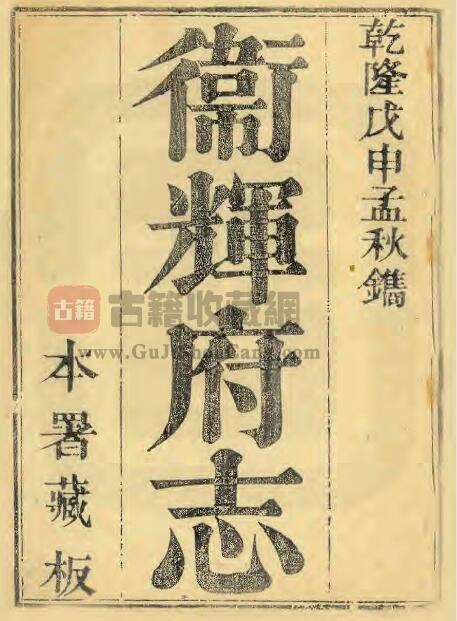 乾隆戊申孟秋鐫
衞輝府志
本署藏板
古籍
古籍收藏網
www.GuJiShouCang.com